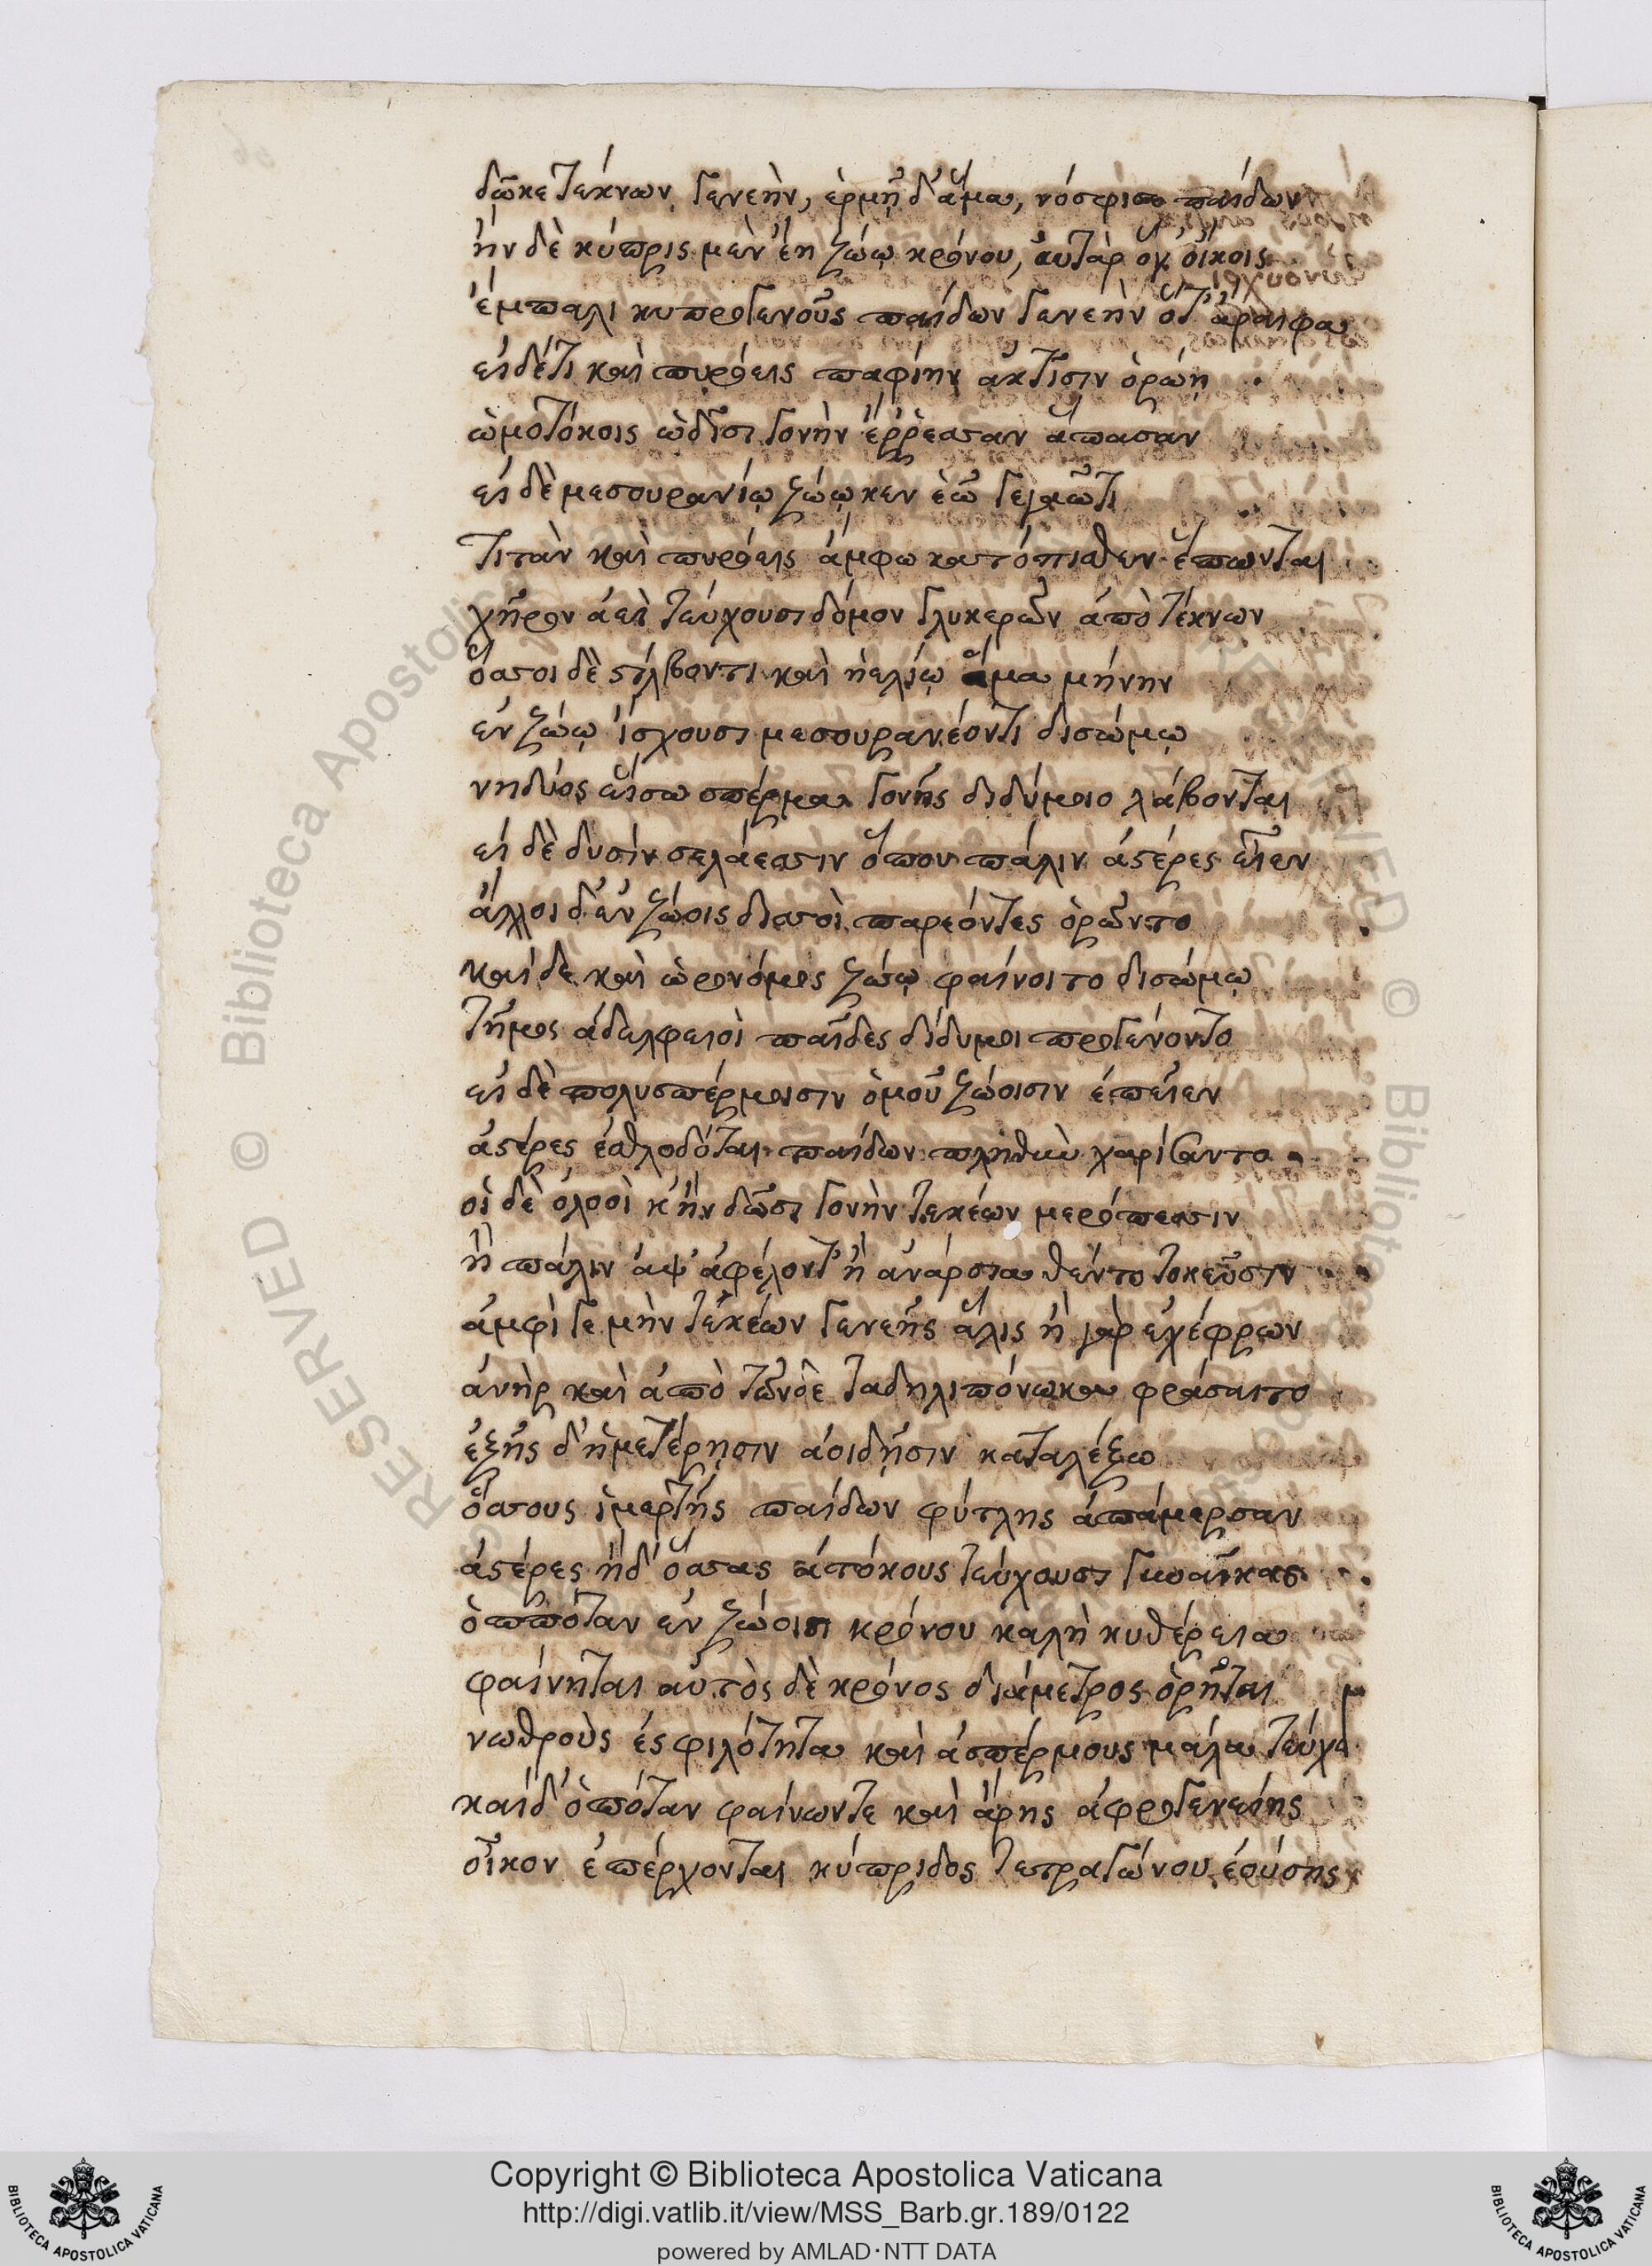 δῶκε τέκνων γενεὴν, ἑρμῇ δ' ἅμα, νόσφισε παίδων
ἢν δὲ κύπρις μὲν ἔῃ ζώῳ κρόνου, αὐτὰρ ὅγ' οἴκοις
ἔμπαλι κυπρογενοῦς παίδων γενεὴν ὅτ' ἄραιφα
εἰ δ' ἔτι καὶ πυρόεις παφίην ἀκτῖσιν ὁρῴη
ὠμοτόκοις ὠδῖσι γονὴν ἔρρεασαν ἅπασαν
εἰ δὲ μεσουρανίῳ ζώῳ κεν ἐῶ γεγαῶτι
τιτὰν καὶ πυρόεις ἄμφω κατόπισθεν ἕπωνται
χῆρον ἀεὶ τεύχουσι δόμον γλυκερῶν ἀπὸ τέκνων
ὅσσοι δὲ στίλβοντι καὶ ἠελίῳ ἅμα μήνην
ἐν ζώῳ ἴσχουσι μεσουρανέοντι δισώμῳ
νηδύος εἴσω σπέρμα γονῆς διδύμοιο λάβονται
εἰ δὲ δυσὶν σελάεσσιν ὅπου πάλιν ἀστέρες εἶεν
ἄλλοι δ' ἐν ζώοις δισσοὶ παρεόντες ὁρῶντο
καὶ δὲ καὶ ὡρονόμος ζώῳ φαίνοιτο δισώμῳ
τῆμος ἀδελφειοὶ παῖδες δίδυμοι προγένοντο
εἰ δὲ πολυσπέρμοισιν ὁμοῦ ζώοισιν ἐπεῖεν
ἀστέρες ἐσθλοδόται παίδων πληθὺν χαρίσαντο
οἱ δὲ ὀλοοὶ κ' ἢν δῶσι γονὴν τεκέων μερόπεσσιν
ἢ πάλιν ἂψ ἀφέλοντ' ἢ ἀνάρσια θέντο τοκεῦσιν
ἀμφί γε μὴν τεκέων γενεῆς ἅλις ἢ γὰρ ἐχέφρων
ἀνὴρ καὶ ἀπὸ τῶνδε τὰ δηλιπόνωκα φράσαιτο
ἑξῆς δ' ἡμετέρῃσιν ἀοιδῇσιν καταλέξω
ὅσσους ἱμερτῆς παίδων φύτλης ἀπάμερσαν
ἀστέρες ἠδ' ὅσσας ἀτόκους τεύχουσι γυναῖκας
ὁππόταν ἐν ζώοισι κρόνου καλὴ κυθέρεια
φαίνηται αὐτὸς δὲ κρόνος διάμετρος ὁρῆται
νωθροὺς ἐς φιλότητα καὶ ἀσπέρμους μάλα τεύχει
καί δ' ὁπόταν φαίνωντε καὶ ἄρης ἀφρογενείης
οἶκον ἐπέρχονται κύπριδος τετραγώνου ἐούσης
Copyright © Biblioteca Apostolica Vaticana
http://digi.vatlib.it/view/MSS_Barb.gr.189/0122
powered by AMLAD·NTT DATA